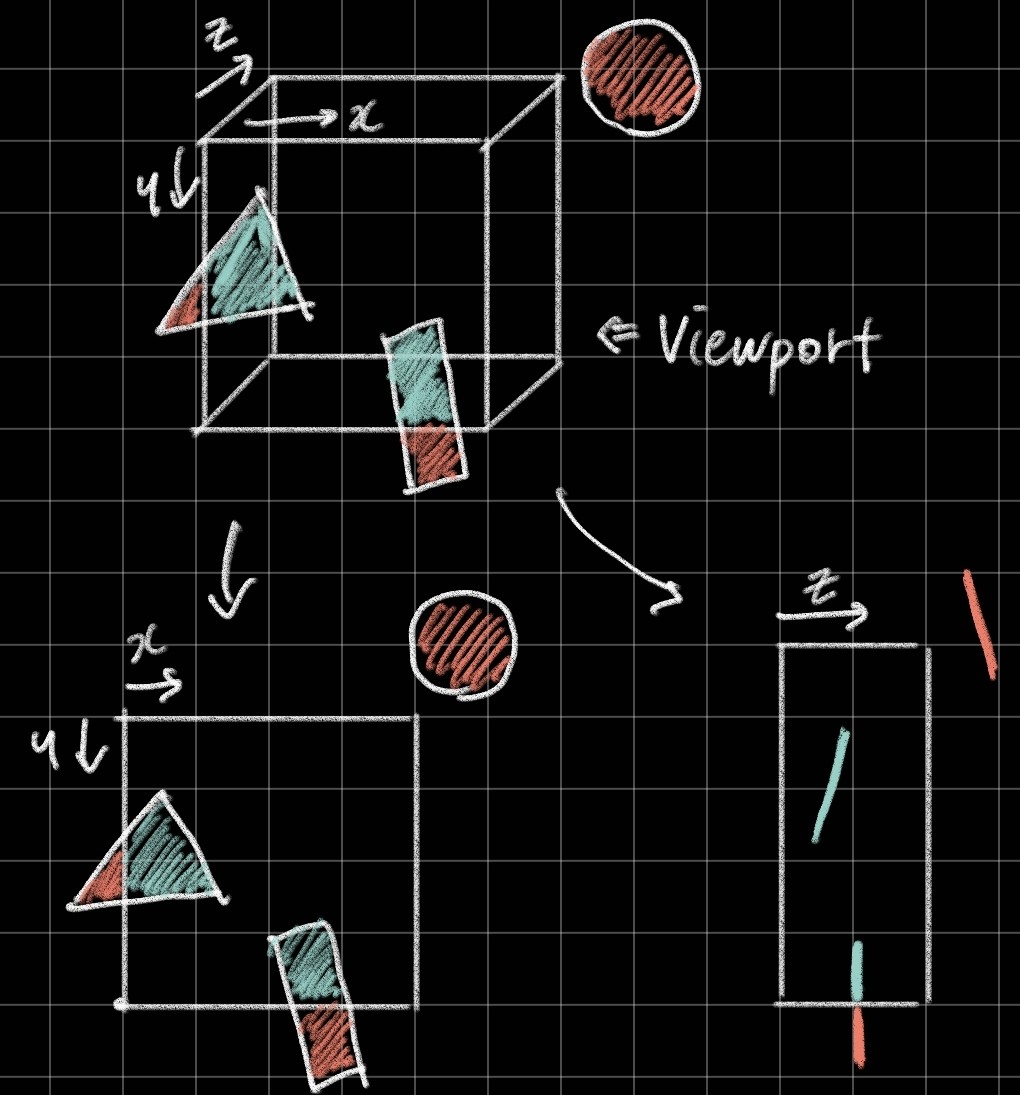 z
x
y
⇐ Viewport
x
z
y